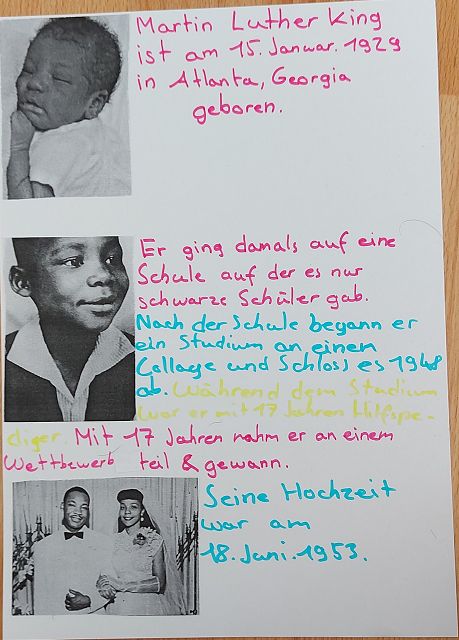 Martin Luther King
ist am 15. Januar. 1929
in Atlanta, Georgia
geboren.
Er ging damals auf eine
Schule auf der es nur
schwarze Schüler gab.
Nach der Schule begann er
ein Studium an einem
Collage und Schloss es 1948
ab. Während dem Studium
war er mit 17 Jahren Hilfspe-
diger. Mit 17 Jahren nahm er an einem
Wettbewerb teil & gewann.
Seine Hochzeit
war am
18. Juni. 1953.